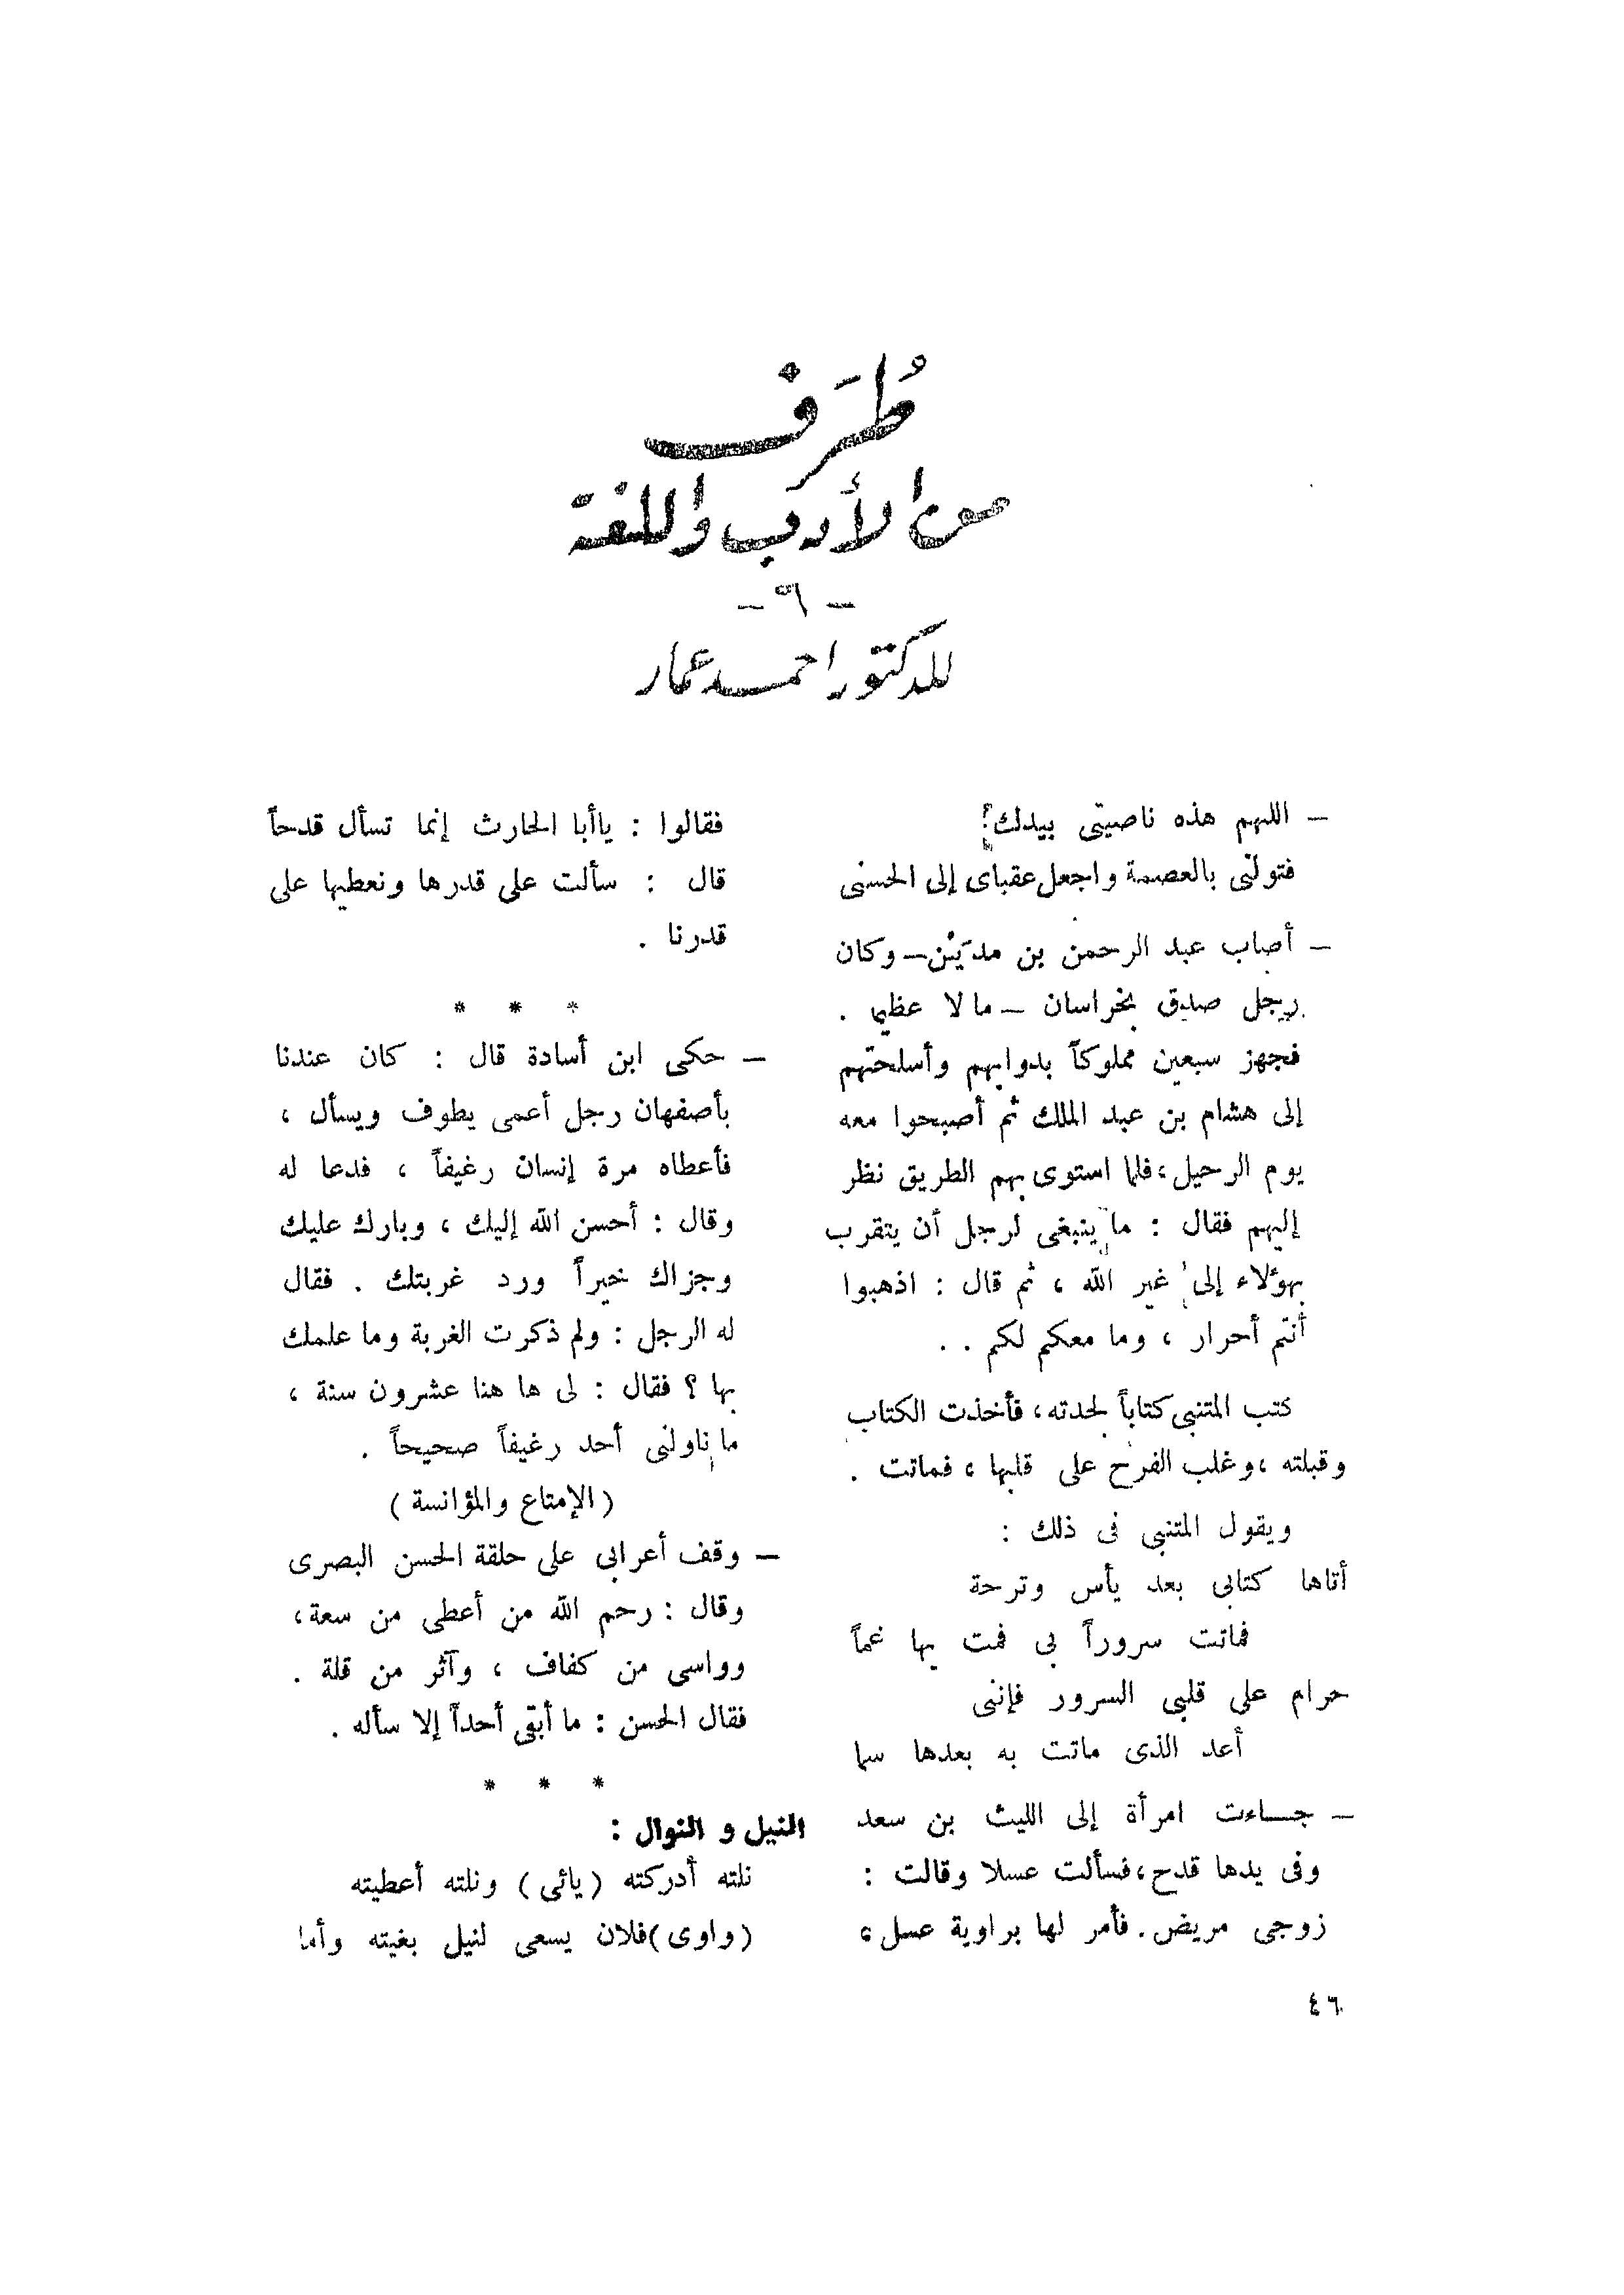 طُرَف
من الأدب واللغة
- ٦ -
للدكتور احمد عمار
— اللهم هذه ناصيتى بيدك؟
فتولنى بالعصمة واجعل عقباى إلى الحسنى
— أصاب عبد الرحمن بن مديَنْ — وكان
رجل صدق بخراسان — مالا عظيما .
فجهز سبعين مملوكاً بدوابهم وأسلحتهم
إلى هشام بن عبد الملك ثم أصبحوا معه
يوم الرحيل، فلما استوى بهم الطريق نظر
إليهم فقال : ما ينبغى لرجل أن يتقرب
بهؤلاء إلى غير الله ، ثم قال : اذهبوا
أنتم أحرار ، وما معكم لكم . .
كتب المتنبى كتاباً لجدته، فأخذت الكتاب
وقبلته ،وغلب الفرح على قلبها ، فماتت .
ويقول المتنبى فى ذلك :
أتاها كتابى بعد يأس وترحة
فماتت سروراً بى فمت بها غماً
حرام على قلبى السرور فإننى
أعد الذى ماتت به بعدها سما
— جـاءت امرأة إلى الليث بن سعد
وفى يدها قدح، فسألت عسلا وقالت :
زوجى مريض. فأمر لها براوية عسل ،
فقالوا : ياأبا الحارث إنما تسأل قدحاً
قال : سألت على قدرها ونعطيها على
قدرنا .
* * *
— حكى ابن أسادة قال : كان عندنا
بأصفهان رجل أعمى يطوف ويسأل ،
فأعطاه مرة إنسان رغيفاً ، فدعا له
وقال : أحسن الله إليك ، وبارك عليك
وجزاك خيراً ورد غربتك . فقال
له الرجل : ولم ذكرت الغربة وما علمك
بها ؟ فقال : لى ها هنا عشرون سنة ،
ما ناولنى أحد رغيفاً صحيحاً .
( الإمتاع والمؤانسة )
— وقف أعرابى على حلقة الحسن البصرى
وقال : رحم الله من أعطى من سعة،
وواسى من كفاف ، وآثر من قلة .
فقال الحسن : ما أبقى أحداً إلا سأله .
* * *
النيل و النوال :
نلته أدركته ( يائى ) ونلته أعطيته
( واوى )فلان يسعى لنيل بغيته وأما
٤٦